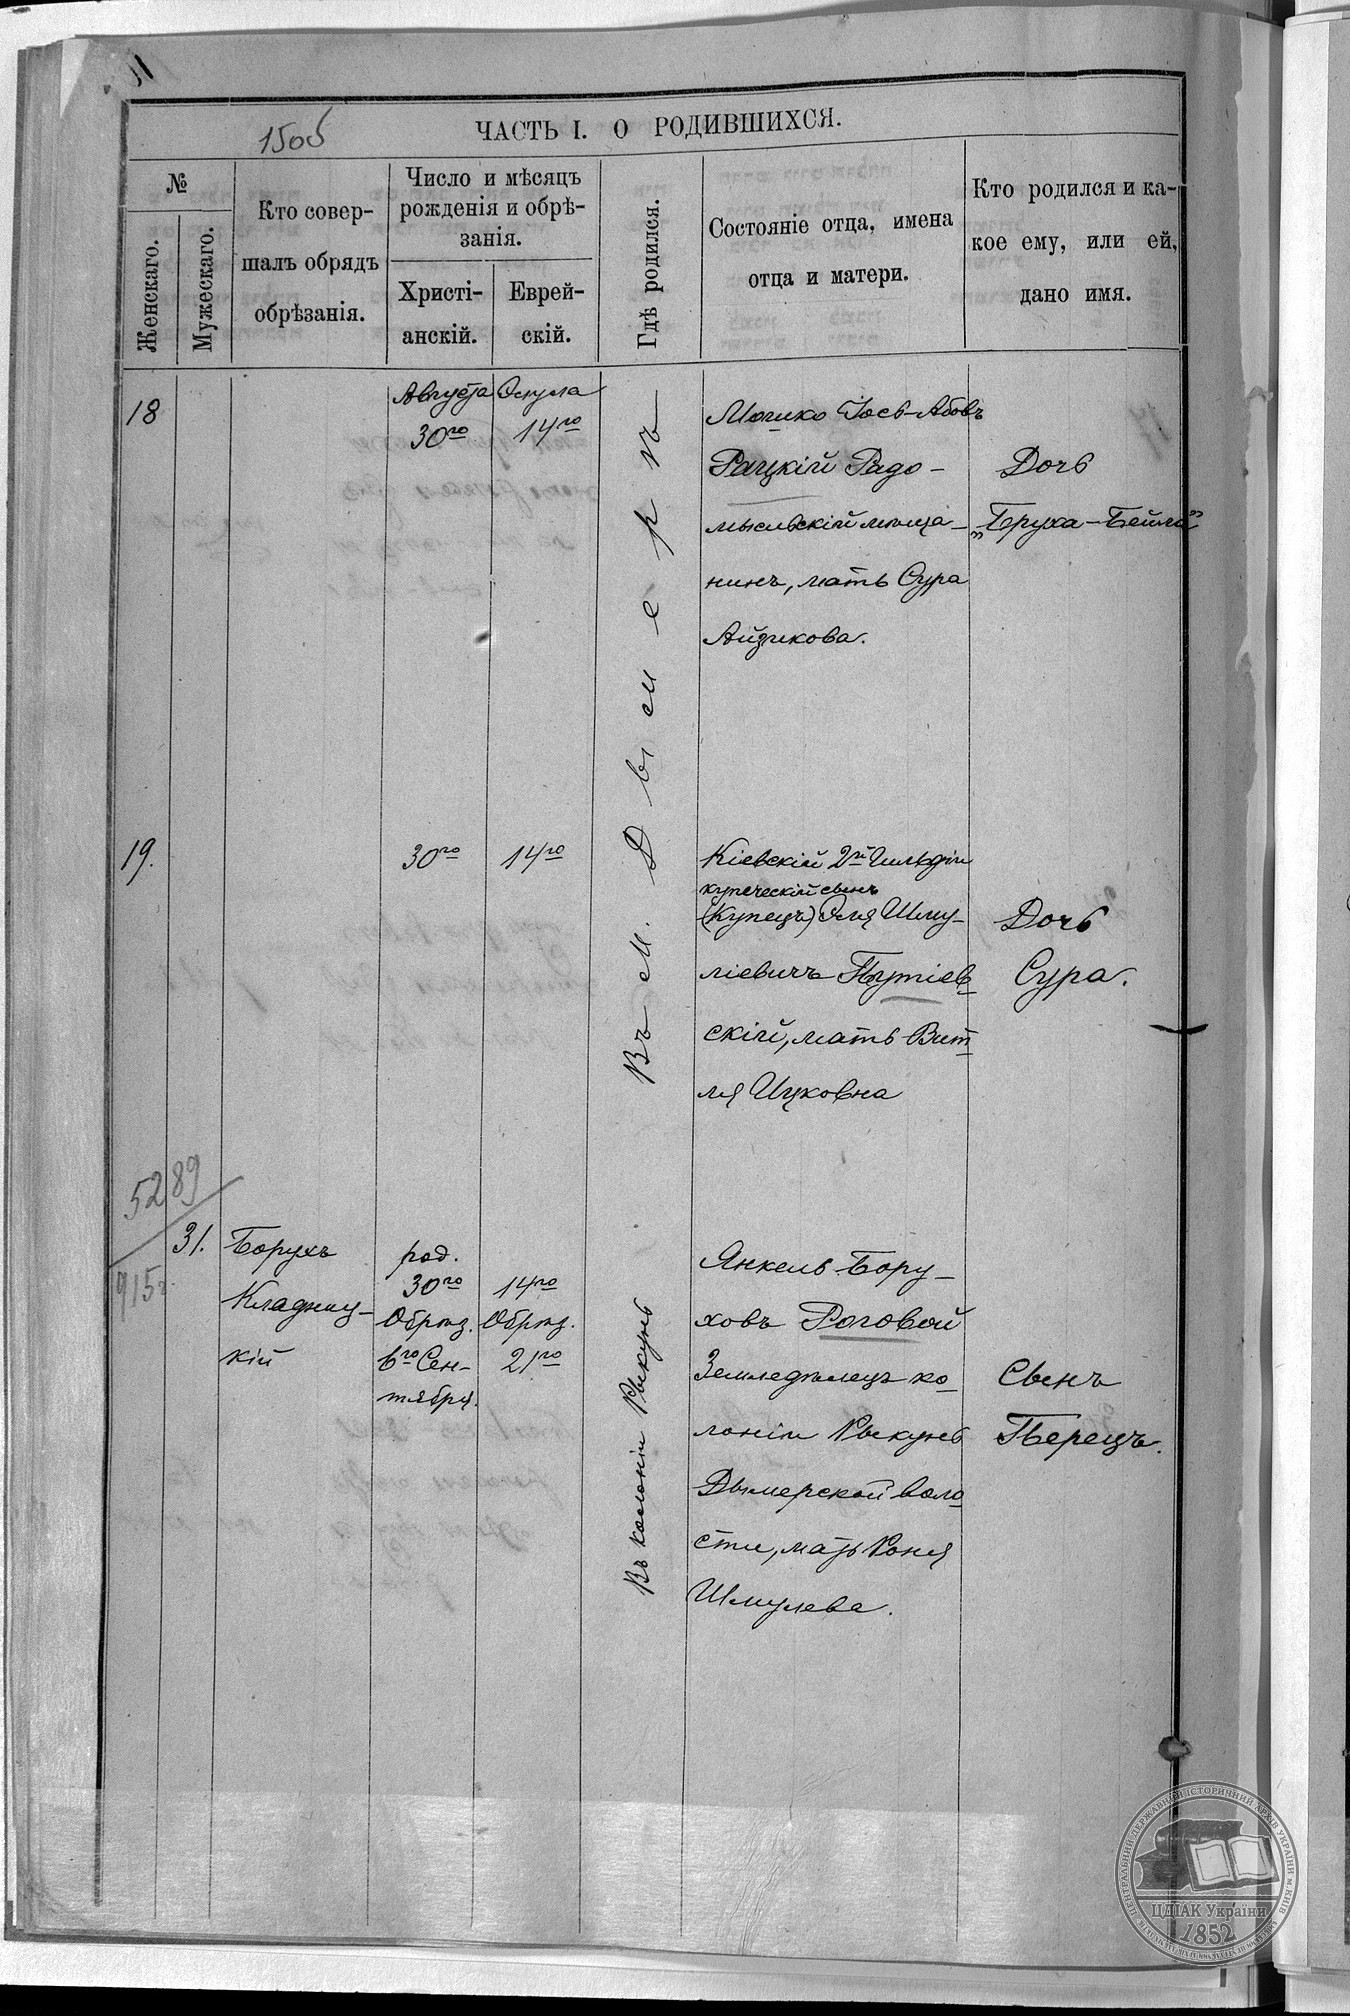 1505
ЧАСТЬ I. О РОДИВШИХСЯ.
№
Женскаго.
Мужескаго.
Кто совер-
шалъ обрядъ
обрѣзанія.
Число и мѣсяцъ
рожденія и обрѣ-
занія.
Христі-
анскій.
Еврей-
скій.
Гдѣ родился.
Состояніе отца, имена
отца и матери.
Кто родился и ка-
кое ему, или ей,
дано имя.
18
Августа
30го
Элула
14го
Въ м. Дымерѣ
Мошко Іось-Абовъ
Рацкій Радо-
мысльскій мѣща-
нинъ, мать Сура
Айзикова.
Дочь
„Бруха-Бейла"
19.
30го
14го
Кіевскій 2й Гильдіи
купеческій сынъ
(Купецъ) Эля Шму-
ліевичъ Путіев-
скій, мать Вит-
ля Ицковна
Дочь
Сура.
52 89
915
31.
Борухъ
Кладниц-
кій
род.
30го
Обрѣз.
6го Сен-
тября.
14го
Обрѣз.
21го
Въ колоніи Рыкунь
Янкель Бору-
ховъ Роговой
Земледѣлецъ ко-
лоніи Рыкунь
Дымерской воло-
сти, мать Роня
Шмулева.
Сынъ
Перецъ.
ЦЕНТРАЛЬНИЙ ДЕРЖАВНИЙ ІСТОРИЧНИЙ АРХІВ УКРАЇНИ м. КИЇВ
ЦДІАК України
1852